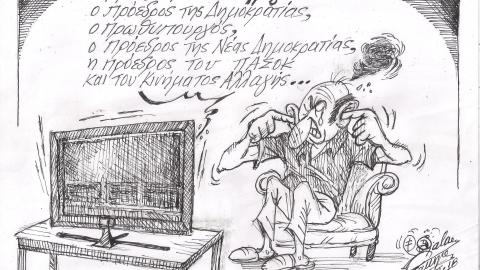 ο Πρόεδρος της Δημοκρατίας,
ο Πρωθυπουργός,
ο Πρόεδρος της Νέας Δημοκρατίας,
η πρόεδρος του ΠΑΣΟΚ
και του Κινήματος Αλλαγής...